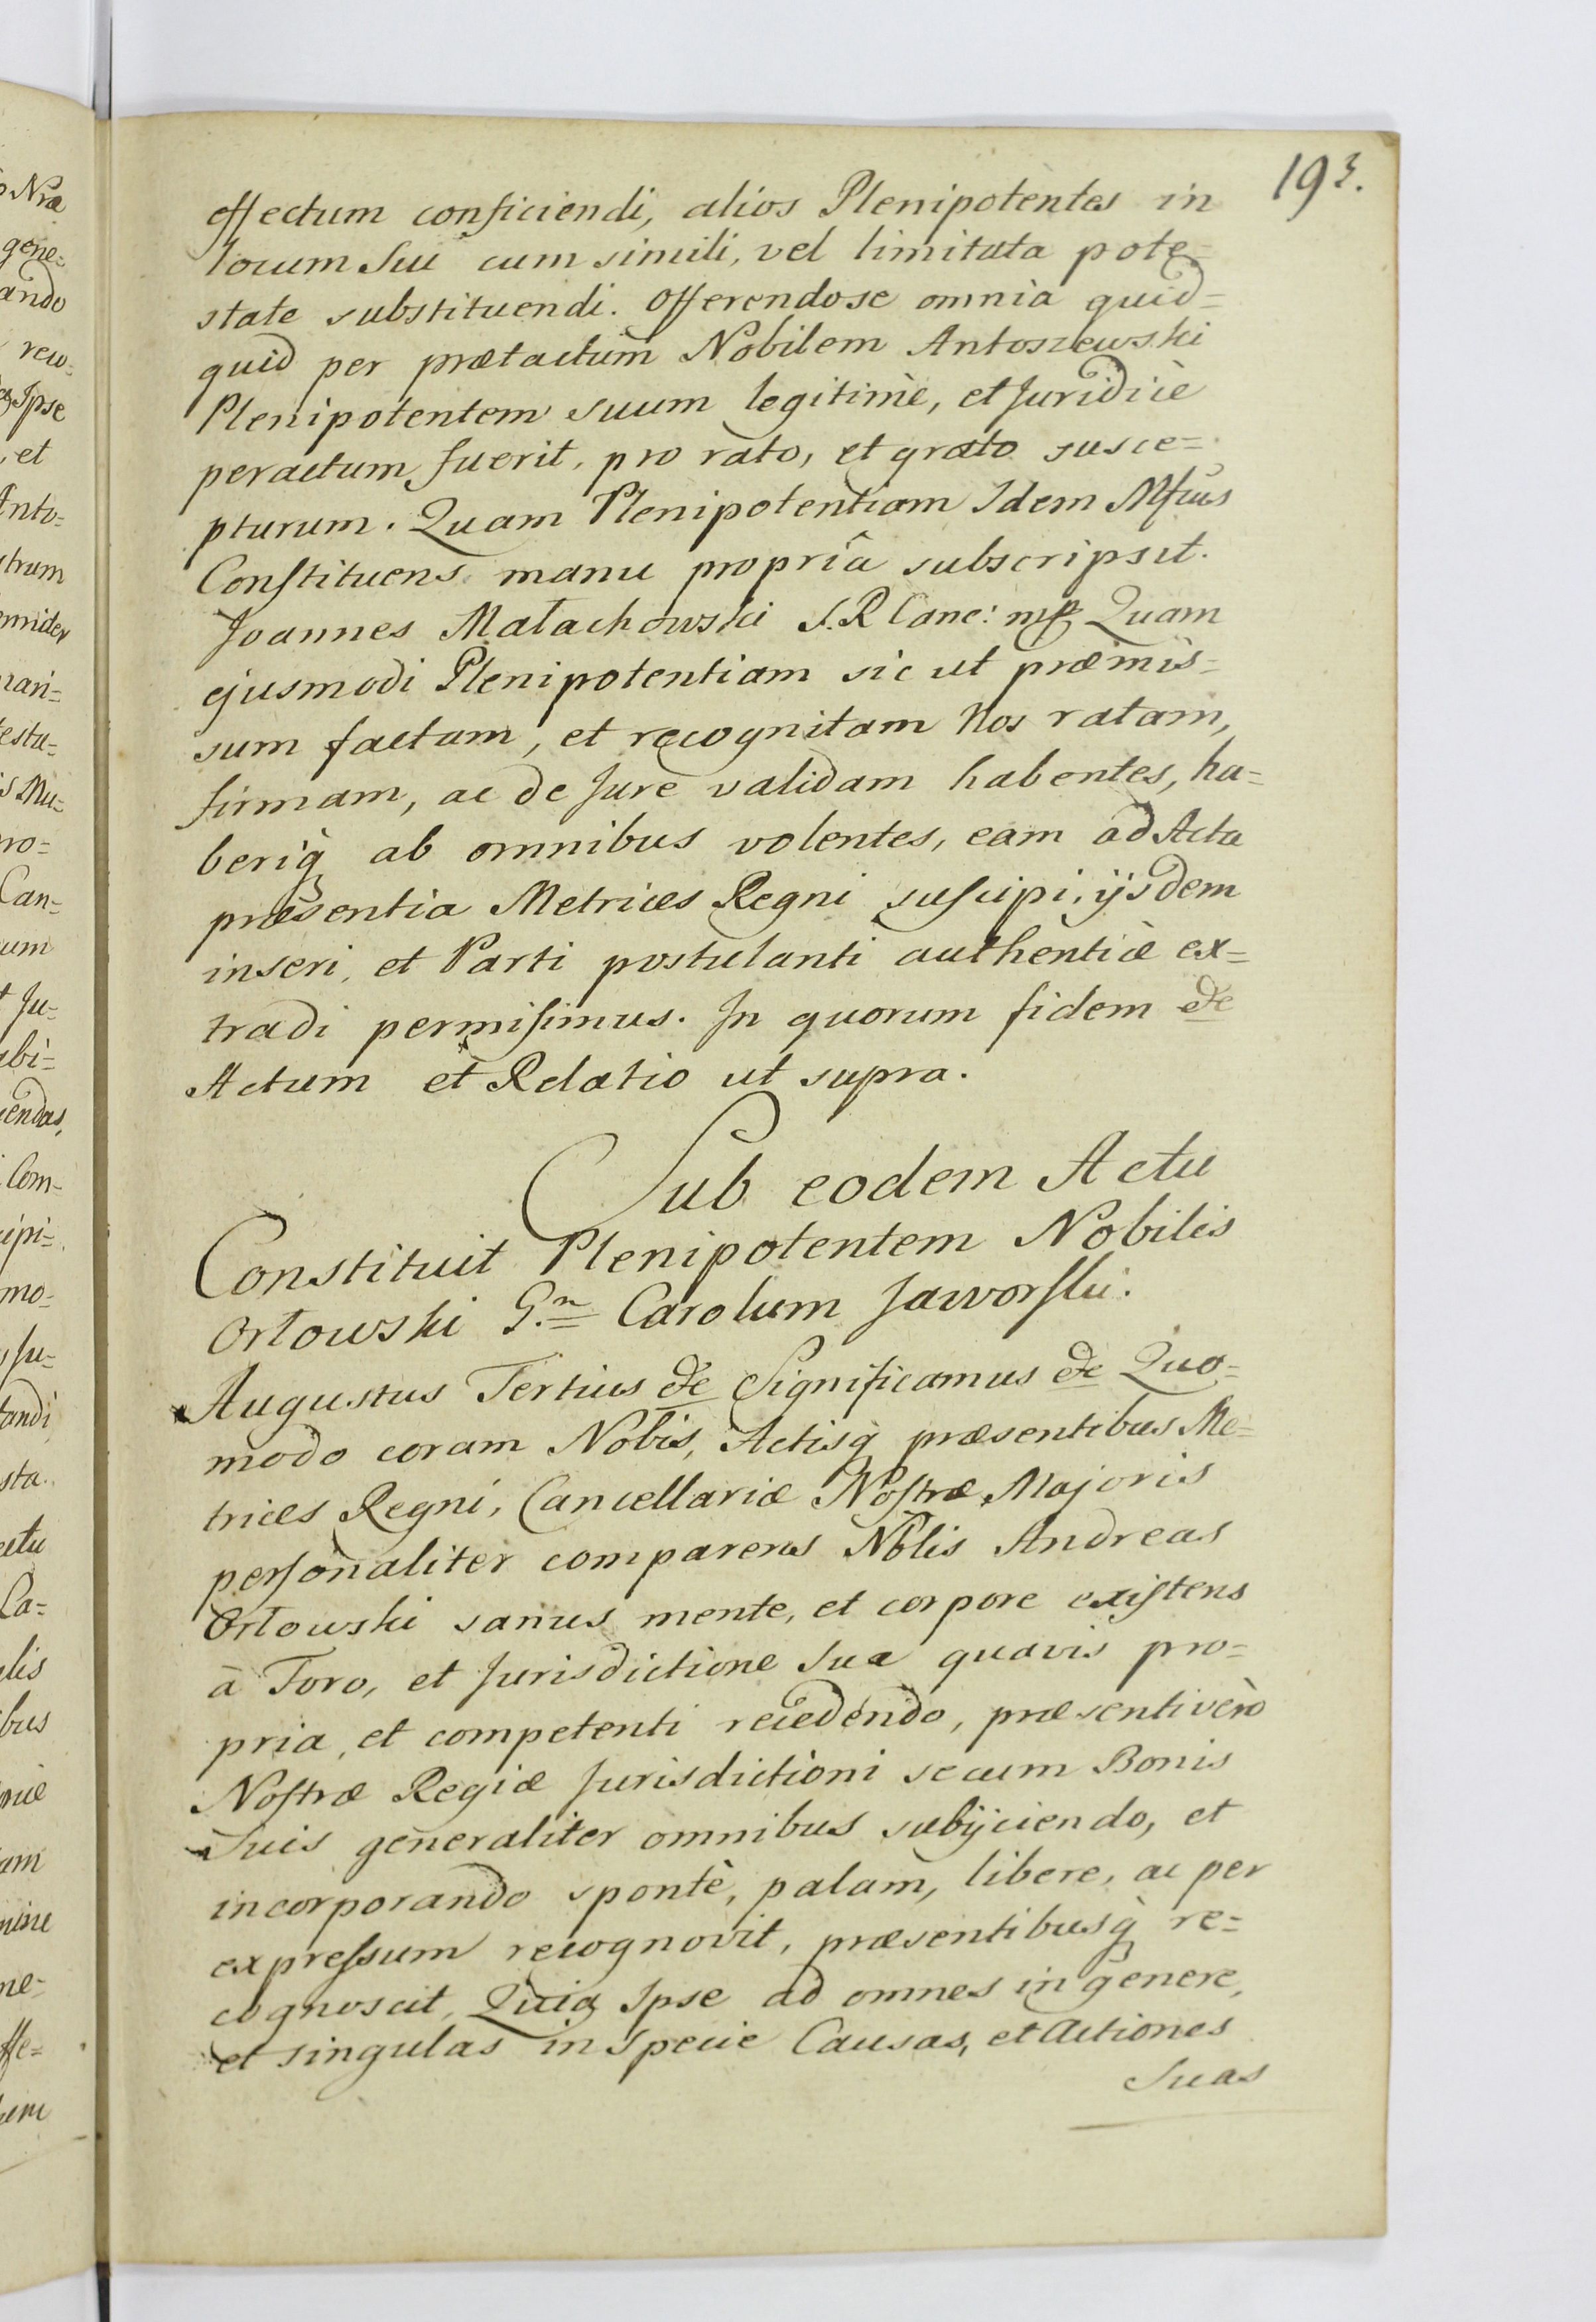 193.
effectum conficiendi, alios Plenipotentes in
locum Sui cum simili, vel limitata pote=
state substituendi. Offerendose omnia quid=
quid per prætactum Nobilem Antoszewski
Plenipotentem suum legitimè, et Juridicè
peractum fuerit, pro rato, et grato susce=
pturum. Quam Plenipotentiam Idem Mfcus
Constituens manu propriâ subscripsit.
Joannes Małachowski S. R Canc: mp Quam
ejusmodi Plenipotentiam sic ut præmis=
sum factam, et recognitam Nos ratam,
firmam, ac de Jure validam habentes, ha=
beriq; ab omnibus volentes, eam ad Acta
præsentia Metrices Regni suscipi, ijsdem
inseri, et Parti postulanti authenticè ex=
tradi permisimus. In quorum fidem &c
Actum et Relatio ut supra.
Sub eodem Actu
Constituit Plenipotentem Nobilis
Orłowski G.n Carolum Jaworski.
Augustus Tertius &c Significamus &c Quo=
modo coram Nobis, Actisq; præsentibus Me=
trices Regni, Cancellariæ Nostræ Majoris
personaliter comparens Nblis Andreas
Orłowski sanus mente, et corpore existens
à Foro, et Jurisdictione Sua quavis pro=
pria, et competenti recedendo, præsenti verò
Nostræ Regiæ Jurisdictioni se cum Bonis
Suis generaliter omnibus subijciendo, et
incorporando spontè, palam, libere, ac per
expressum recognovit, præsentibusq; re=
cognoscit, Quia Ipse ad omnes in genere,
et singulas in Specie Causas, et Actiones
Suas